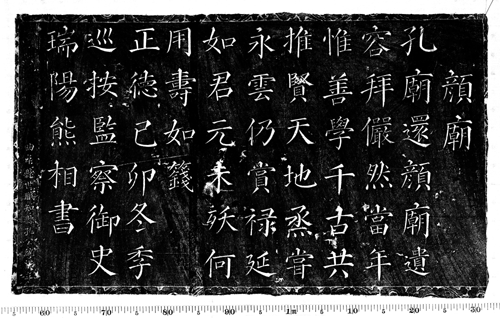 顏廟
孔廟還顏廟遺
容拜儼然當年
惟善學千古共
推賢天地烝嘗
永雲仍賞祿延
如君元未殀何
用壽如籛
正德己卯冬季
巡按監察御史
瑞陽熊相書
60 70 80 90 1m 10 20 30